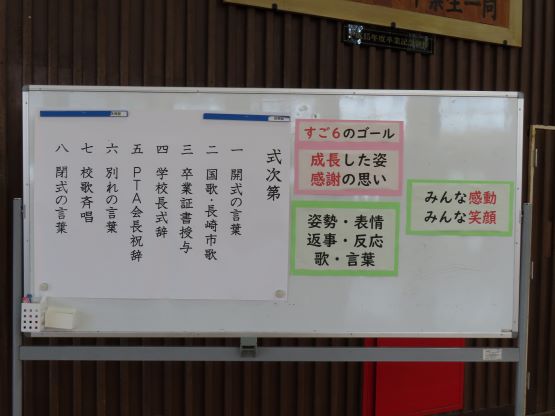 卒業生一同
15年度卒業記念
式次第
一 開式の言葉
二 国歌・長崎市歌
三 卒業証書授与
四 学校長式辞
五 PTA会長祝辞
六 別れの言葉
七 校歌斉唱
八 閉式の言葉
すご6のゴール
成長した姿
感謝の思い
姿勢・表情
返事・反応
歌・言葉
みんな感動
みんな笑顔